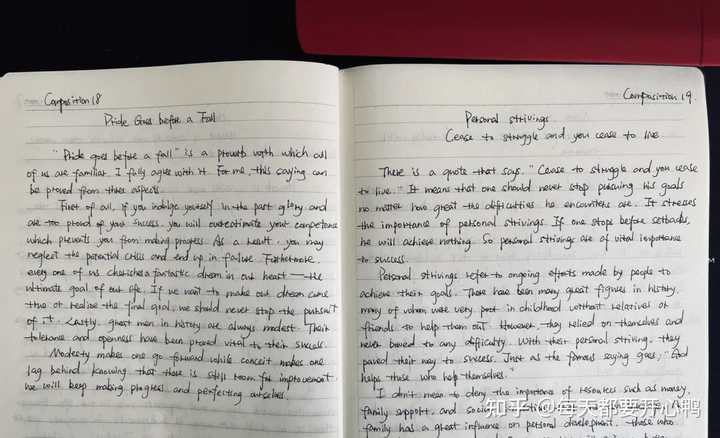 Composition 18
Pride Goes before a Fall
"Pride goes before a fall" is a proverb with which all
of us are familiar. I fully agree with it. For me, this saying can
be proved from three aspects.
First of all, if you indulge yourself in the past glory and
are too proud of your success, you will overestimate your competence
which prevents you from making progress. As a result, you may
neglect the potential crisis and end up in failure. Furthermore,
every one of us cherishes a fantastic dream in our heart — the
ultimate goal of our life. If we want to make our dream come
true or realize the final goal, we should never stop the pursuit
of it. Lastly, great men in history are always modest. Their
tolerance and openness have been proved vital to their success.
Modesty makes one go forward while conceit makes one
lag behind. Knowing that there is still room for improvement,
we will keep making progress and perfecting ourselves.
Composition 19
Personal strivings
Cease to struggle and you cease to live
There is a quote that says, "Cease to struggle and you cease
to live." It means that one should never stop pursuing his goals
no matter how great the difficulties he encounters are. It stresses
the importance of personal strivings. If one stops before setbacks,
he will achieve nothing. So personal strivings are of vital importance
to success.
Personal strivings refer to ongoing efforts made by people to
achieve their goals. There have been many great figures in history,
many of whom were very poor in childhood without relatives or
friends to help them out. However, they relied on themselves and
never bowed to any difficulty. With their personal striving, they
paved their way to success. Just as the famous saying goes, "God
helps those who help themselves."
I don't mean to deny the importance of resources such as money,
family support, and social
family has a great influence on personal development. Those who
知乎 @每天都要开心鸭